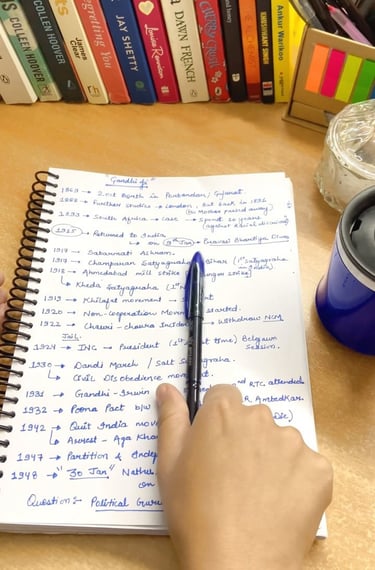 COLLEEN HOOVER
COLLEEN HOOVER
James Clear
Regretting You
JAY SHETTY
Louisa
DAWN FRENCH
KHUSHWANT SINGH
Ankur Warikoo
"Gandhi ji"
1869 → 2nd in Porbandar, Gujarat
1888 → Further studies → London, but back in 1891
(∵ Mother passed away)
1893 → South Africa → Case → Spent 20 years
(against Racist discrimi)
1915 → Returned to India
↳ on 9th Jan → Pravasi Bhartiya Diwas
1917 → Sabarmati Ashram.
→ Champaran Satyagraha → Bihar (1st Satyagraha
India)
1918 → Ahmedabad mill strike strike)
↳ Kheda Satyagraha (1st N
1919 → Khilafat movement →
1920 → Non-Cooperation Mov started.
1922 → Chauri-chaura Incident → withdrew NCM
Jail.
1924 → INC → President (1st time) Belgium
Session.
1930 → Dandi March / Salt Satyagraha.
↳ Civil Disobedience movement.
1931 → Gandhi-Irwin 2nd RTC attended
1932 → Poona Pact b/w R Ambedkar.
1942 → Quit India mov Die)
↳ Arrest - Aga Khan
1947 → Partition & Indep
1948 → "30 Jan" Nathu
on
Question:- Political Guru